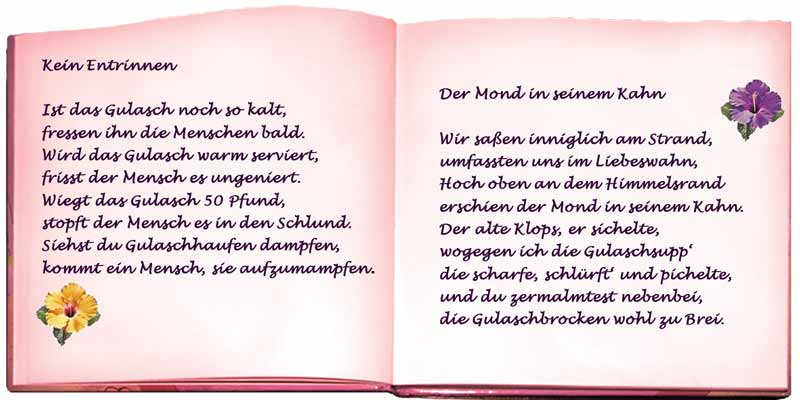 Kein Entrinnen
Ist das Gulasch noch so kalt,
fressen ihn die Menschen bald.
Wird das Gulasch warm serviert,
frisst der Mensch es ungeniert.
Wiegt das Gulasch 50 Pfund,
stopft der Mensch es in den Schlund.
Siehst du Gulaschhaufen dampfen,
kommt ein Mensch, sie aufzumampfen.
Der Mond in seinem Kahn
Wir saßen inniglich am Strand,
umfassten uns im Liebeswahn,
Hoch oben an dem Himmelsrand
erschien der Mond in seinem Kahn.
Der alte Klops, er sichelte,
wogegen ich die Gulaschsupp‘
die scharfe, schlürft‘ und pichelte,
und du zermalmtest nebenbei,
die Gulaschbrocken wohl zu Brei.